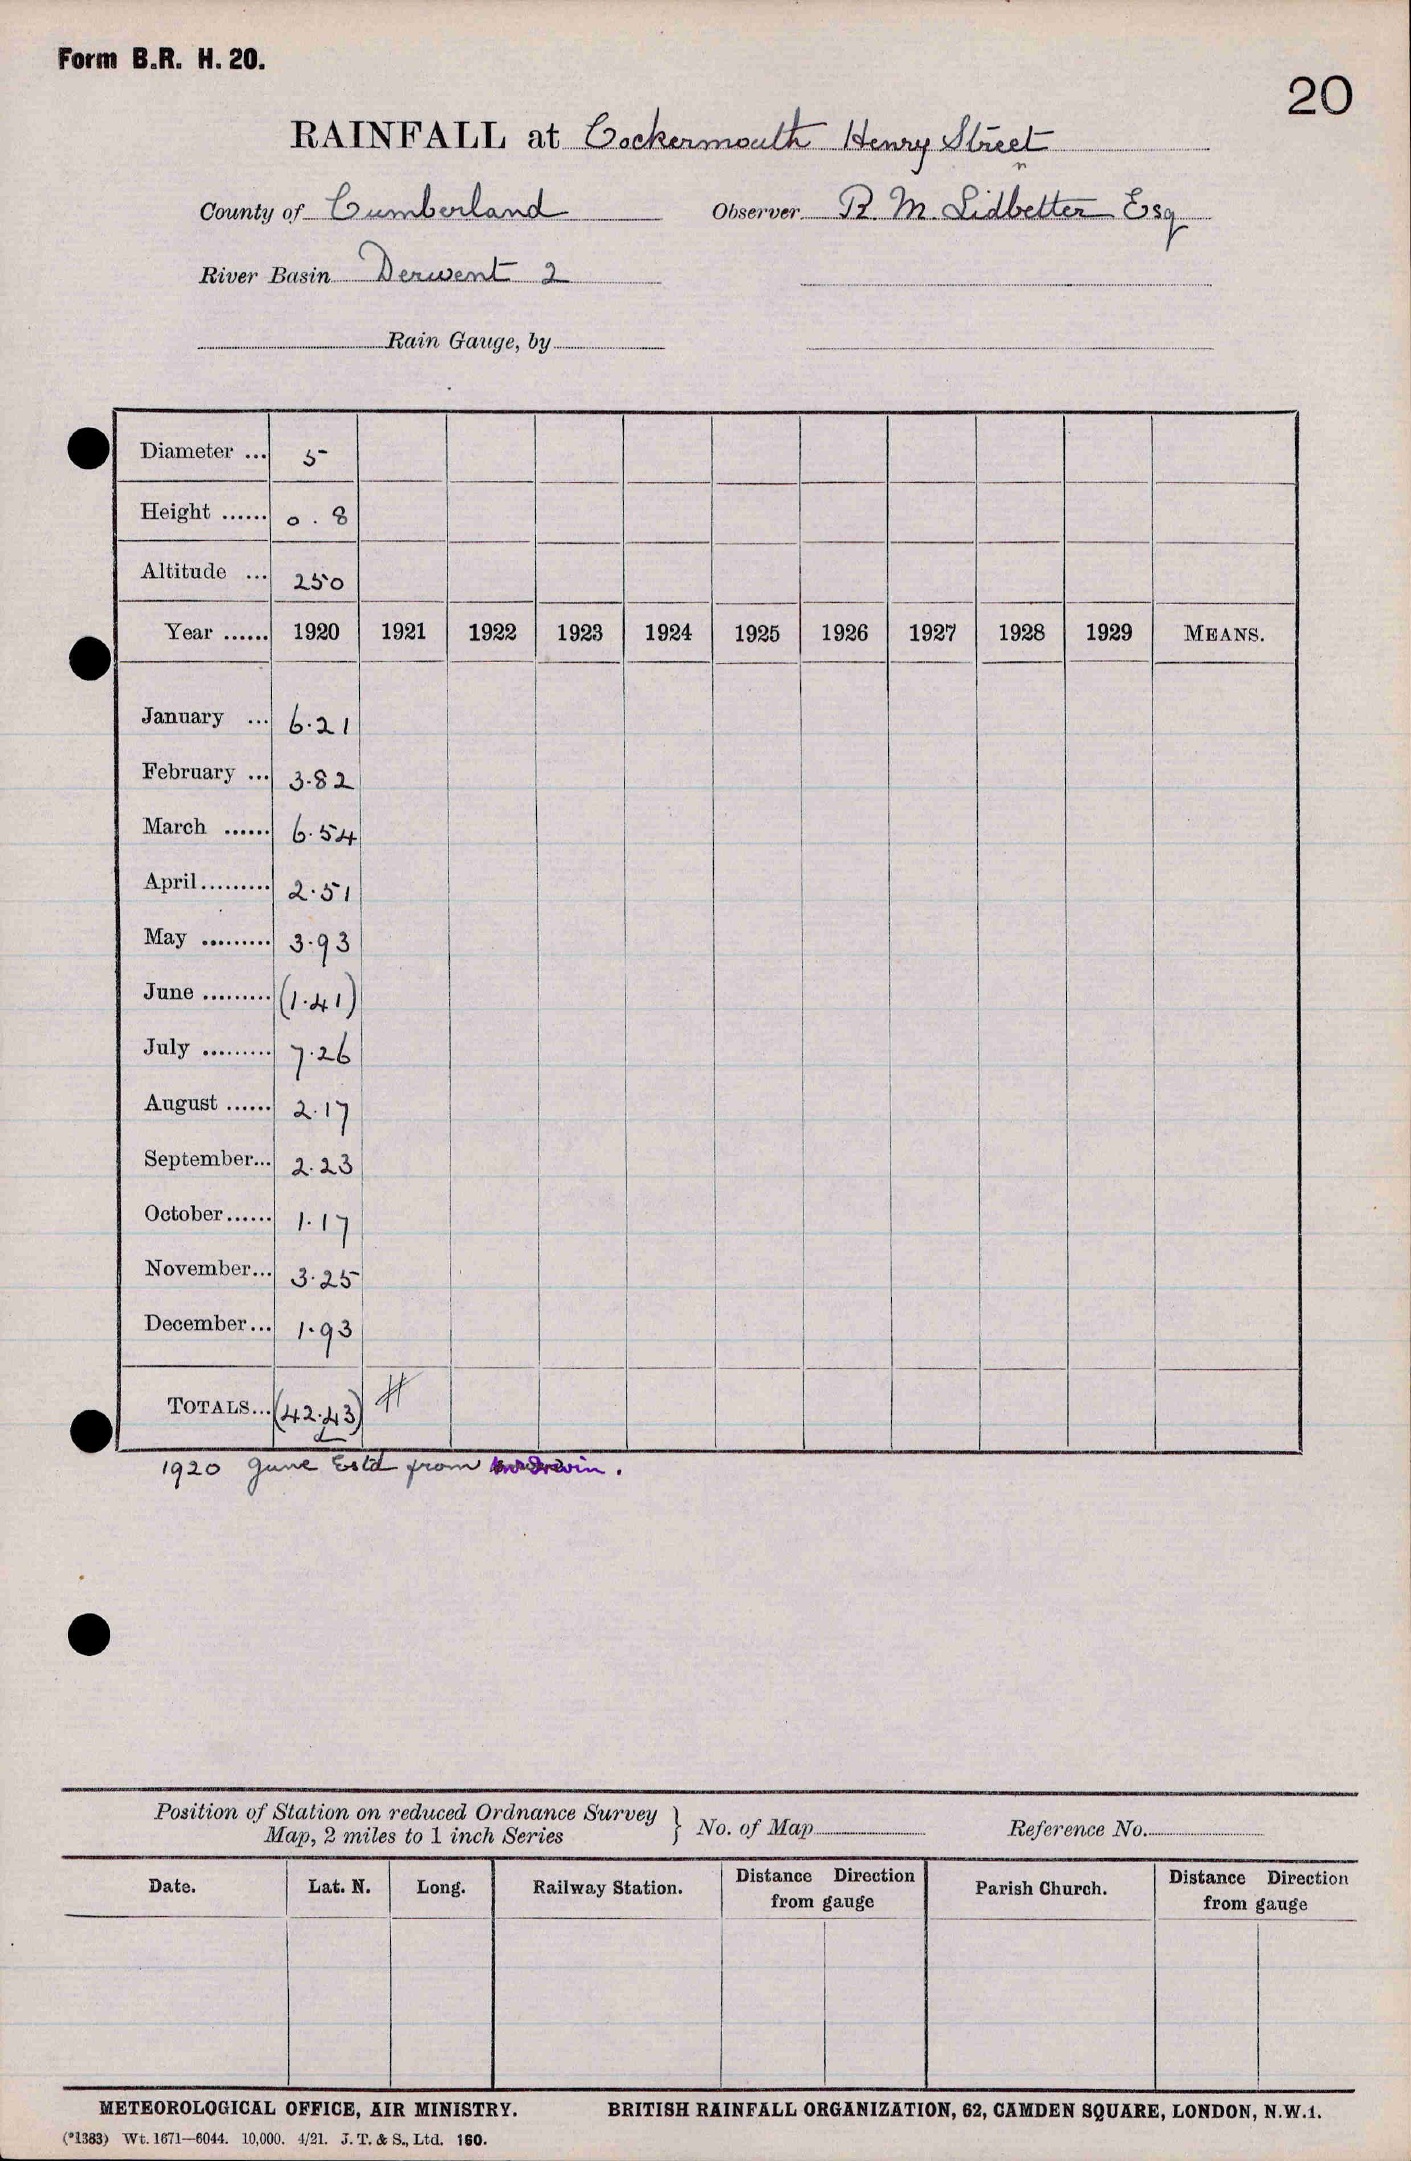 Form B.R. H. 20.
20
RAINFALL at Cockermouth Henry Street
County of Cumberland Observer R. M. Lidbetter Esq
River Basin Derwent 2
Rain Gauge, by
Diameter ... 5
Height ...... 0.8
Altitude ... 250
Year ...... 1920 1921 1922 1923 1924 1925 1926 1927 1928 1929 MEANS.
January ... 6.21
February ... 3.82
March ...... 6.54
April ......... 2.51
May ......... 3.93
June ......... (1.41)
July ......... 7.26
August ...... 2.17
September... 2.23
October...... 1.17
November... 3.25
December... 1.93
TOTALS... (42.43)
1920 June Estd from
Position of Station on reduced Ordnance Survey
Map, 2 miles to 1 inch Series } No. of Map Reference No.
Date. Lat. N. Long. Railway Station. Distance Direction from gauge Parish Church. Distance Direction from gauge
METEOROLOGICAL OFFICE, AIR MINISTRY. BRITISH RAINFALL ORGANIZATION, 62, CAMDEN SQUARE, LONDON, N.W.1.
(*1383) Wt. 1671—6044. 10,000. 4/21. J. T. & S., Ltd. 160.